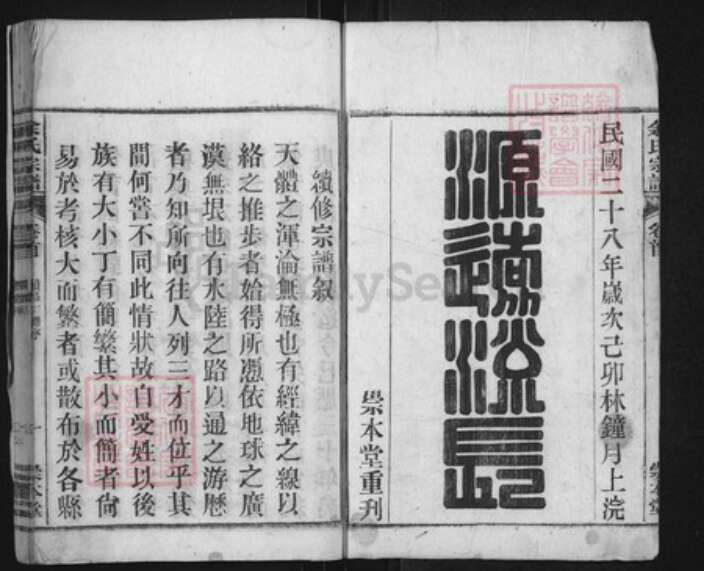 余氏宗譜
卷首
崇本堂
民國二十八年歲次己卯林鐘月上浣
源遠流長
崇本堂重刊
續修宗譜叙
天體之渾淪無極也有經緯之線以
絡之推步者始得所憑依地球之廣
漠無垠也有水陸之路以通之游歷
者乃知所向往人列三才而位乎其
間何嘗不同此情狀故自受姓以後
族有大小丁有簡繁其小而簡者尙
易於考核大而繁者或散布於各縣
余氏宗譜
卷首
崇本堂
FamilySearch